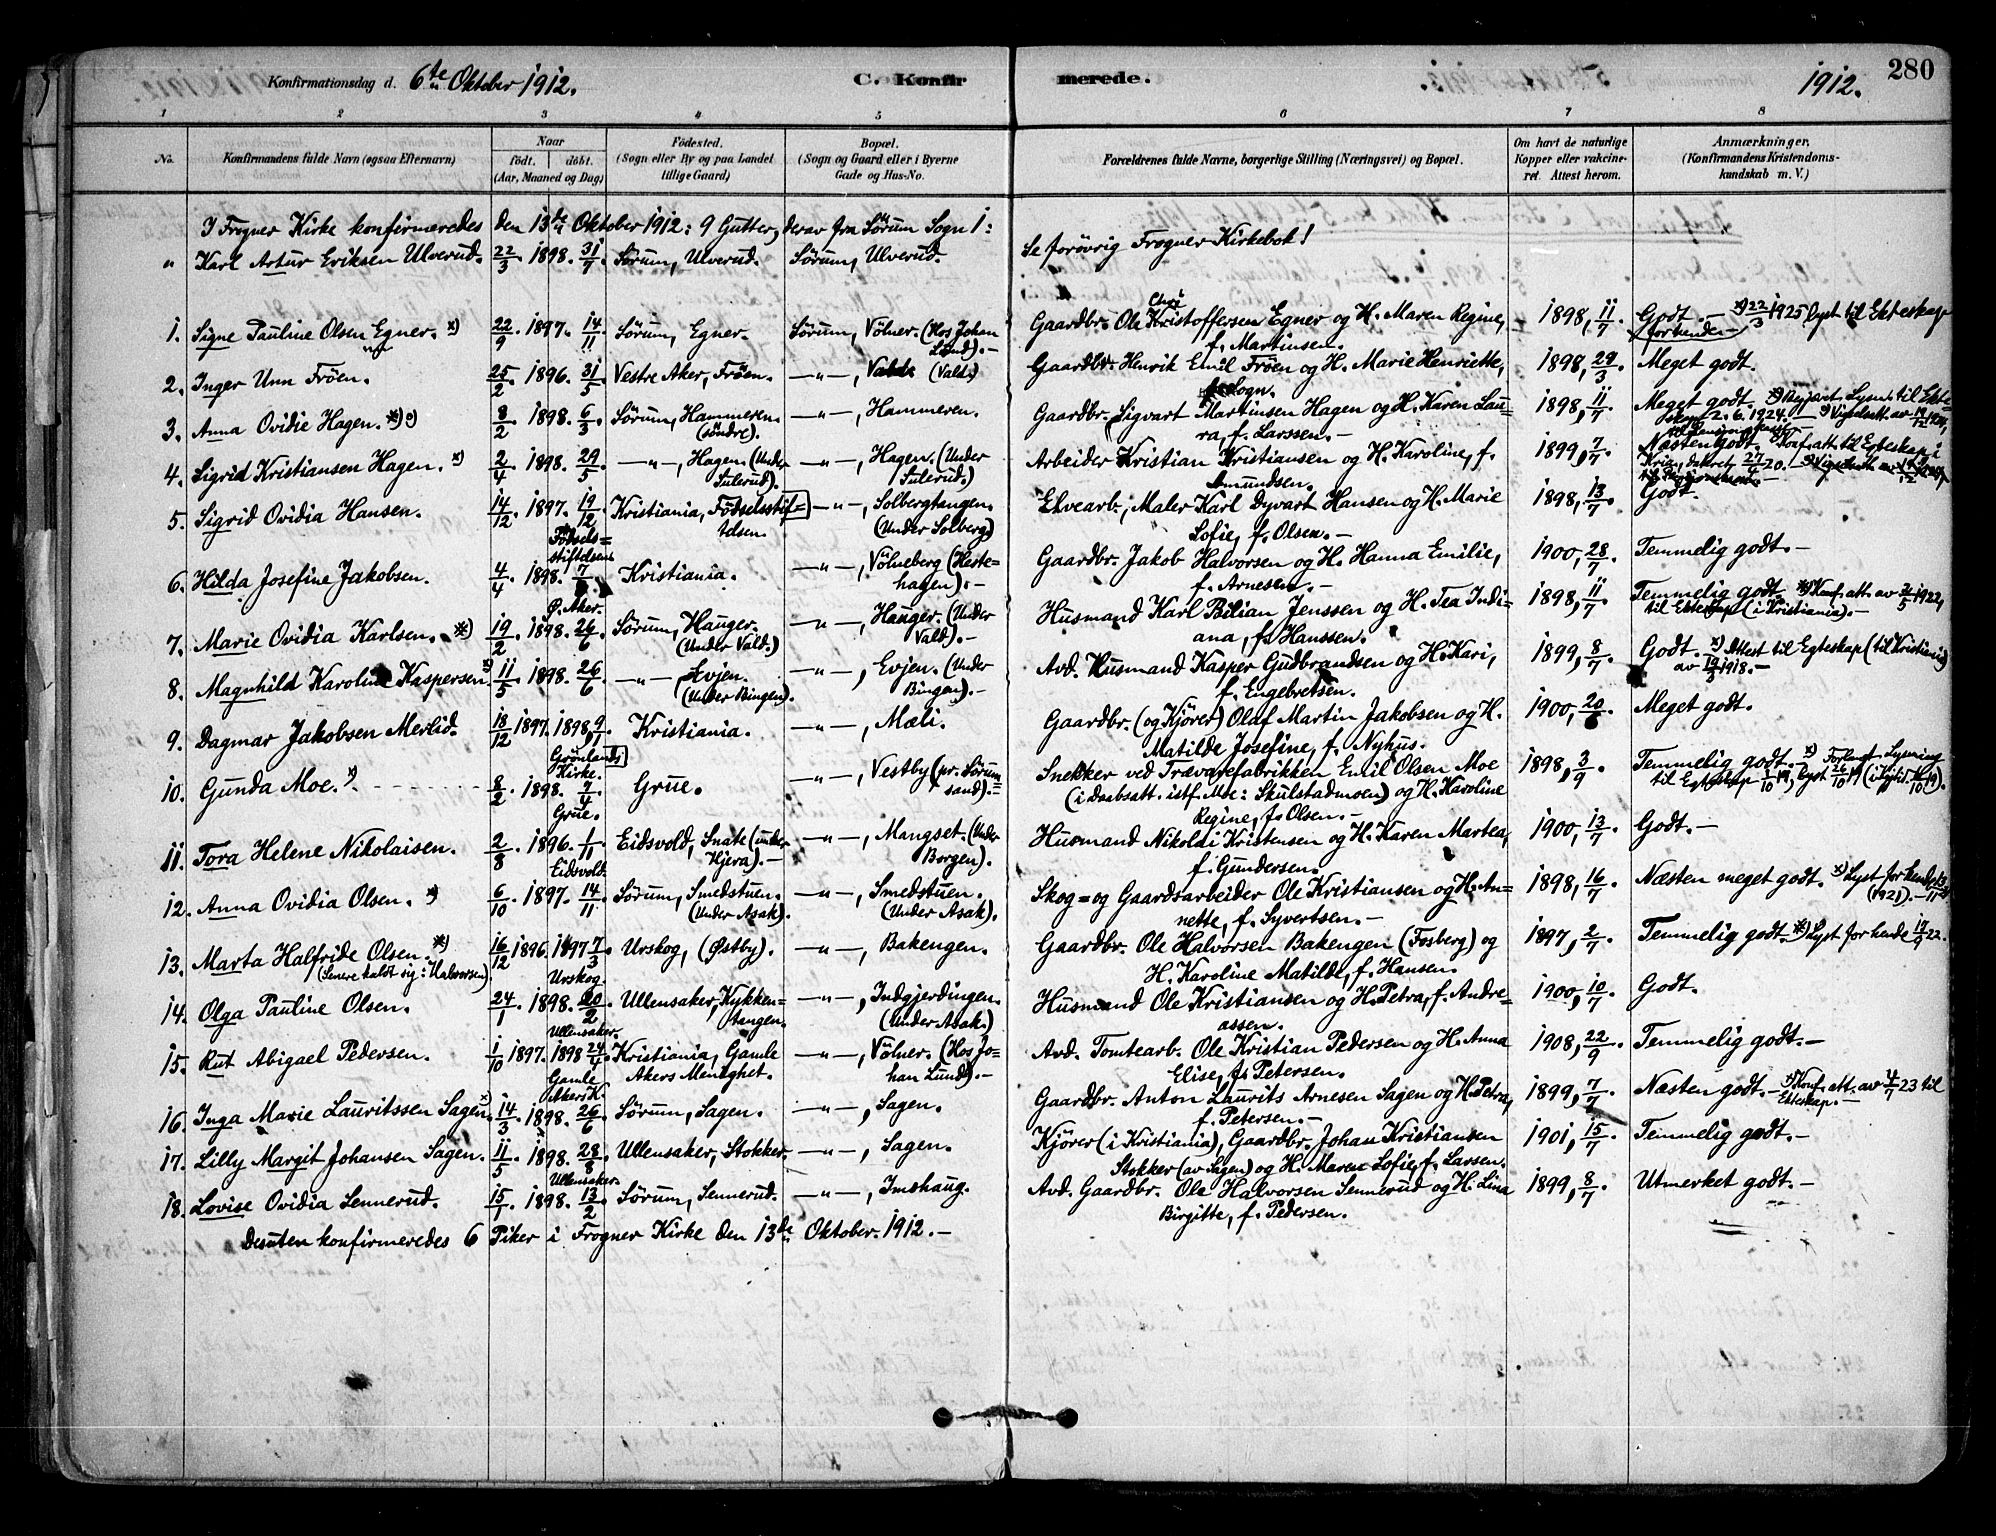 280
Konfirmationsdag d. 6te Oktober 1912. C. Konfir merede. 1912.
1 2 3 4 5 6 7 8
No. Konfirmandens fulde Navn (ogsaa Efternavn) Naar födt. döbt. (Aar, Maaned og Dag) Födested. (Sogn eller By og paa Landet tillige Gaard) Bopæl. (Sogn og Gaard eller i Byerne Gade og Hus-No. Forældrenes fulde Navne, borgerlige Stilling (Næringsvei) og Bopæl. Om havt de naturlige Kopper eller vakcineret. Attest herom. Anmærkninger. (Konfirmandens Kristendomskundskab m. V.)
I Frogner Kirke konfirmeredes den 13de Oktober 1912: 9 Gutter, derav fra Sörum Sogn 1: Se forövrig Frogner Kirkebok!
" Karl Artur Eriksen Ulverud. 22/3 1898. 31/7. Sörum, Ulverud. Sörum, Ulverud.
1. Signe Pauline Olsen Egner. x) 22/9. 1897. 14/11 Sörum, Egner. Sörum, Völner. (Hos Johan Lund).- Gaardbr. Ole Kristoffersen Egner og H. Maren Regine, f. Martinsen. 1898, 11/7. Godt. - x) 22/3 1925 lyst til Ekteskap forhender
2. Inger Unn Fröen. 25/2. 1896. 31/5. Vestre Aker, Fröen. -"-, Valds (Vald) Gaardbr. Henrik Emil Fröen og H. Marie Henriette, f. Sogn. 1898, 29/3. Meget godt.
3. Anna Ovidie Hagen. x) o) 8/2. 1898. 6/3. Sörum, Hammeren (söndre). -"-, Hammeren. Gaardbr. Sigvart Martinsen Hagen og H. Karen Laura, f. Larssen. - 1898, 11/7. Meget godt.
4. Sigrid Kristiansen Hagen. x) 2/4. 1898. 29/5. -"-, Hagen. (Under Sulerud). -"-, Hagen. (Under Sulerud.) Arbeider Kristian Kristiansen og H. Karoline, f. Amundsen. 1899, 7/7. Næsten godt.
5. Sigrid Ovidia Hansen. 14/12. 1897. 19/12. Födselsstiftelsen. Kristiania, Födselsstiftelsen. -"-, Solbergtangen. (Under Solberg). Elvearb., Maler Karl Dyvart Hansen og H. Marie Sofie, f. Olsen. - 1898, 13/7. Godt.
6. Hilda Josefine Jakobsen. 4/4. 1898. 7/ Ø. Aker. Kristiania. -"-, Völneberg (Hestehagen).- Gaardbr. Jakob Halvorsen og H. Hanna Emilie, f. Arnesen. - 1900, 28/7. Temmelig godt.-
7. Marie Ovidia Karlsen. x) 19/2. 1898. 26/6. Sörum, Hauger. (Under Vald.) -"-, Hauger. (Under Vald).- Husmand Karl Bilian Jenssen og H. Tea Indiana, f. Hanssen. 1898, 11/7. Temmelig godt. x) Konf. att. av 2/5 1922, til Ekteskap (i Kristiania).-
8. Magnhild Karoline Kaspersen. x) 11/5. 1898. 26/6. -"- Evjen. (Under Bingen). -"-, Evjen. (Under Bingen).- Avd. Husmand Kasper Gudbrandsen og H. Kari, f. Engebretsen. 1899, 8/7. Godt. x) Attest til Egteskap (til Kristiania) av 19/3 1918.-
9. Dagmar Jakobsen Merlid. 18/12. 1897. 1898, 9/1. Grönlands Kirke. Kristiania. -"-, Mæli. Gaardbr. (og Kjörer) Olaf Martin Jakobsen og H. Matilde Josefine, f. Nyhus. 1900, 20/6. Meget godt.
10. Gunda Moe. x) 8/2. 1898. 7/4. Grue. Grue. -"-, Vestby (pr. Sörumsand).- Snekker ved Trævarefabrikken Emil Olsen Moe (i Daabsatt. istf. Moe: Skulstadmoen) og H. Karoline Regine, f. Olsen. - 1898, 3/9. Temmelig godt. - x) Forlænf. Lysning til Egteskap 1/10 19, lyst 26/10 19
11. Tora Helene Nikolaisen. 2/8. 1896. 1/11. Eidsvold. Eidsvold, Snate (under Hjera).- -"-, Mangset. (Under Borgen). Husmand Nikoldi Kristensen og H. Karen Martea, f. Gundersen. 1900, 13/7. Godt.-
12. Anna Ovidia Olsen. x) 6/10. 1897. 14/11. Sörum, Smedstuen. (Under Asak). -"-, Smedstuen. (Under Asak). Skog= og Gaardsarbeider Ole Kristiansen og H. Annette, f. Syvertsen.- 1898, 16/7. Næsten meget godt. x) Lyst for hende (1921).-
13. Marta Halfride Olsen. x) (Senere kaldt sig: Halvorsen) 16/12 1896. 1897 7/3. Urskog. Urskog, (Østby). -"-, Bakengen. Gaardbr. Ole Halvorsen Bakengen (Fosberg) og H. Karoline Matilde, f. Hansen. 1897, 2/7. Temmelig godt. x) Lyst for hende 17/9 22.
14. Olga Pauline Olsen. 24/1. 1898. 20/2. Ullensaker. Ullensaker, Kykkentangen. -"-, Indgjerdingen. (Under Asak.) Husmand Ole Kristiansen og H. Petra, f. Andreassen. 1900, 10/7. Godt.
15. Rut Abigael Pedersen. 1/10 1897. 1898 24/4. Gamle Akers K. Kristiania, Gamle Akers Menighet. -"-, Völner. (Hos Johan Lund).- Avd. Tomtearb. Ole Kristian Pedersen og H. Anna Elise, f. Petersen. 1908, 22/9. Temmelig godt.-
16. Inga Marie Lauritssen Sagen. x) 14/3. 1898. 26/6. Sörum, Sagen. -"-, Sagen. Gaardbr. Anton Laurits Arnesen Sagen og H. Petra, f. Petersen.- 1899, 7/7. Næsten godt. - x) Konf. att. av 4/7 23 til Ekteskap.-
17. Lilly Margit Johansen Sagen. 11/5. 1898. 28/8. Ullensaker. Ullensaker, Stokker. -"-, Sagen. Kjörer (i Kristiania), Gaardbr. Johan Kristiansen Stokker (av Sagen) og H. Maren Sofie, f. Larsen. 1901, 15/7. Temmelig godt.-
18. Lovise Ovidia Sennerud. 15/1. 1898. 13/2. Sörum, Sennerud. -"-, Imshaug. Avd. Gaardbr. Ole Halvorsen Sennerud og H. Lina Birgitte, f. Pedersen. 1899, 8/7. Utmerket godt.-
Desuten konfirmeredes 6 Piker i Frogner Kirke den 13de Oktober 1912.-